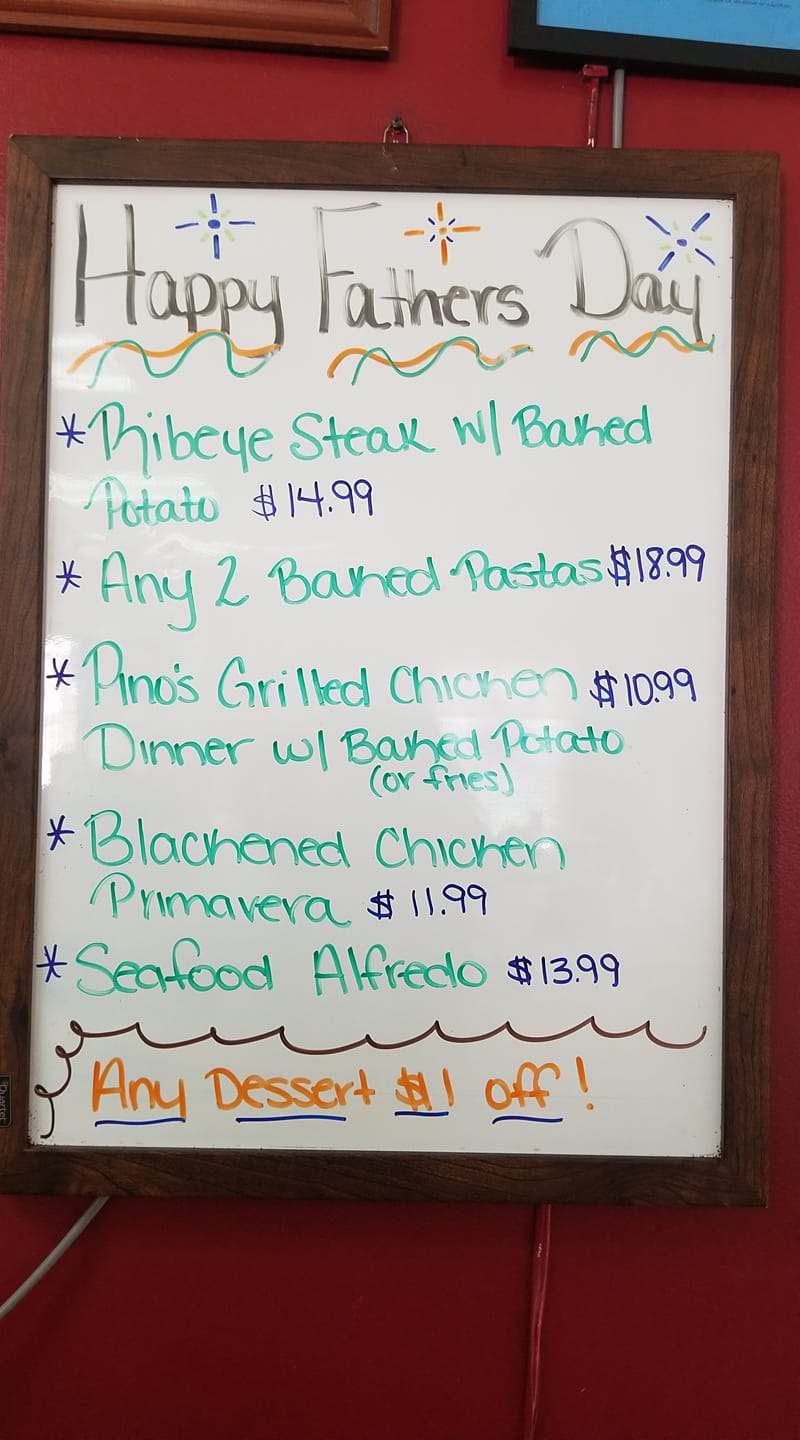 Happy Fathers Day
* Ribeye Steak w/ Baked
Potato $14.99
* Any 2 Baked Pastas $18.99
* Pino's Grilled Chicken $10.99
Dinner w/ Baked Potato
(or fries)
* Blackened Chicken
Primavera $11.99
* Seafood Alfredo $13.99
Any Dessert $1 off!
Quartet